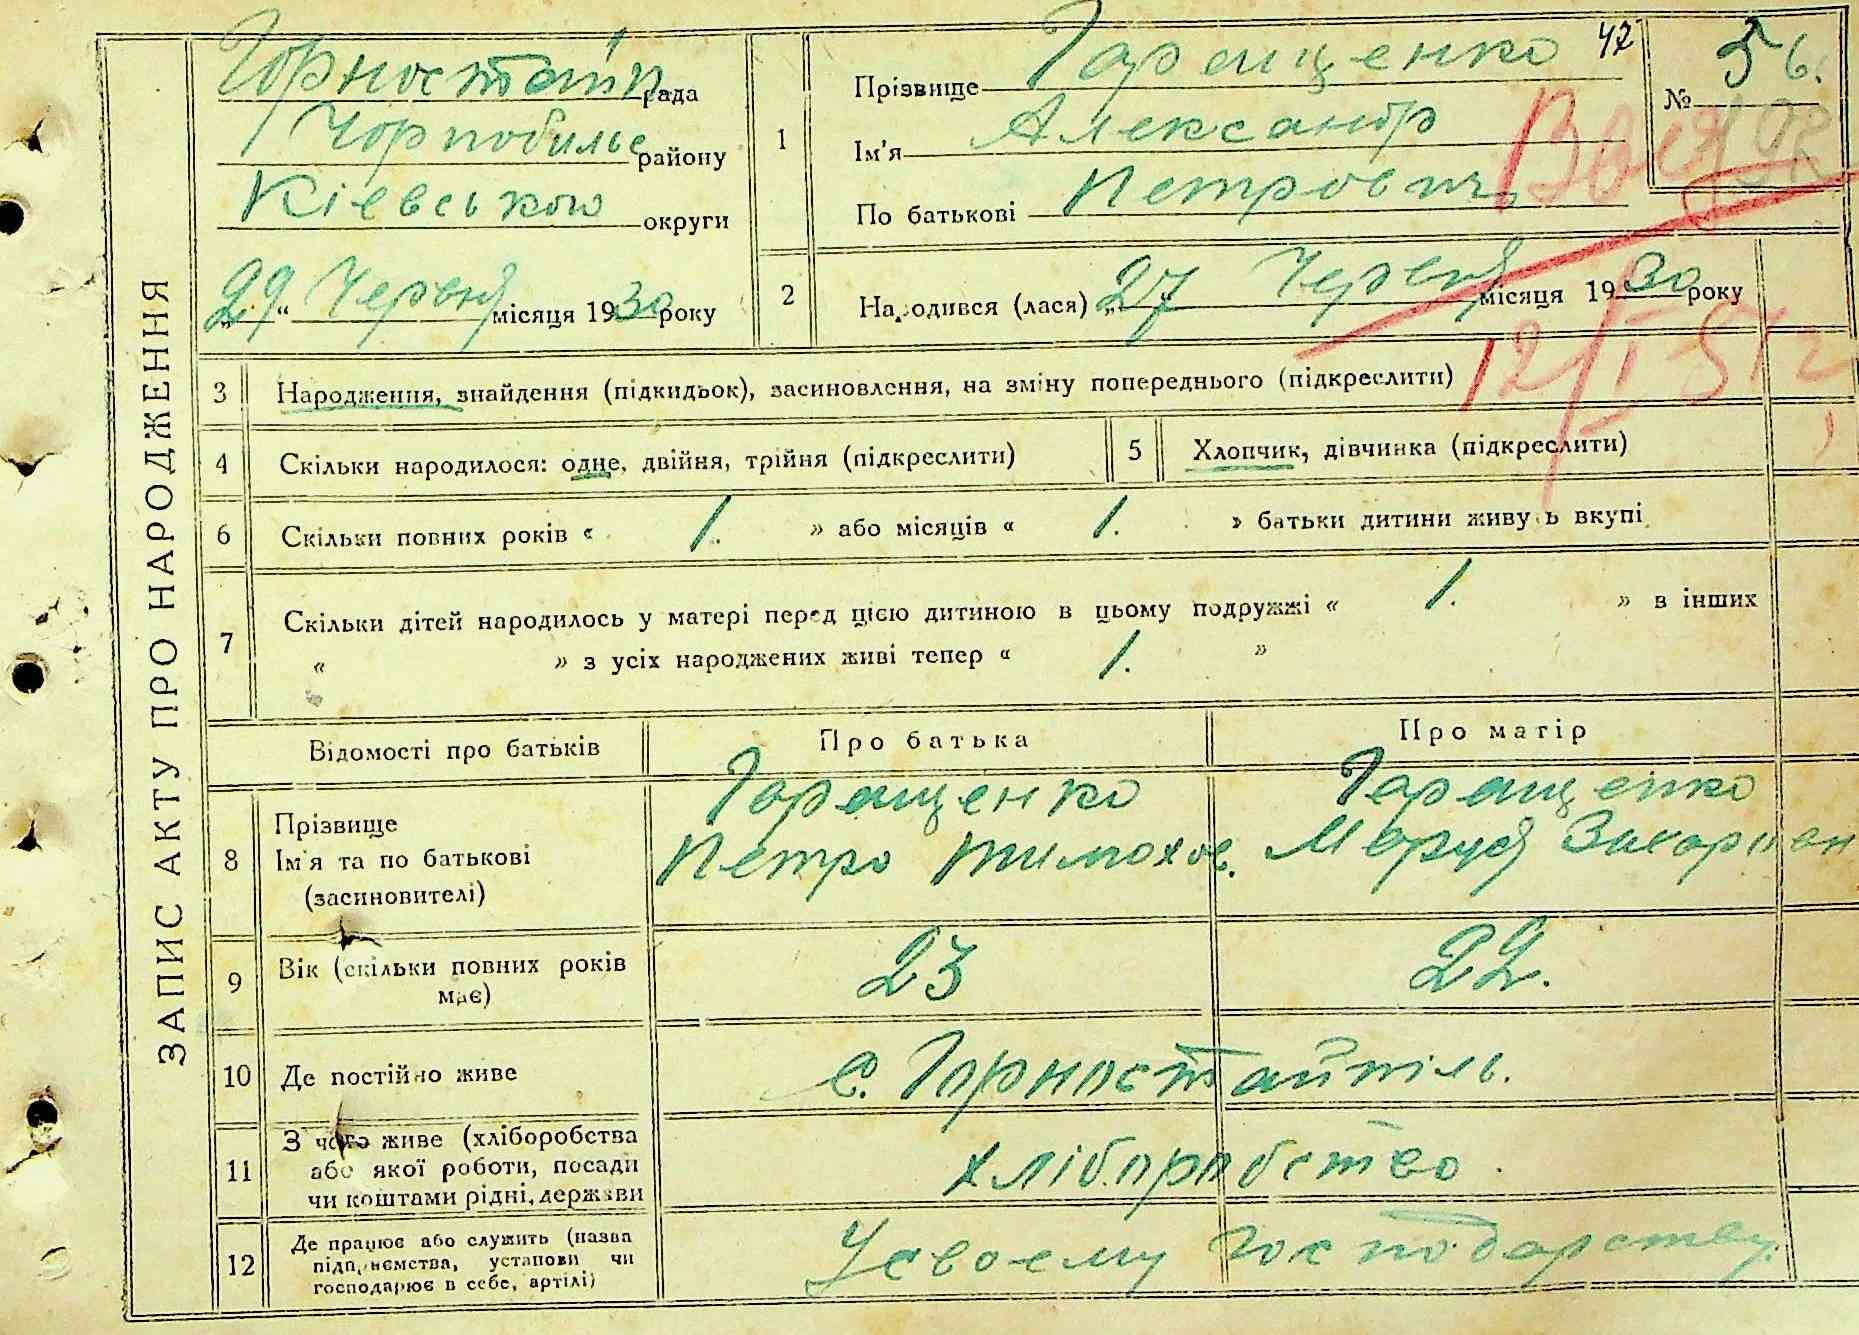 ЗАПИС АКТУ ПРО НАРОДЖЕННЯ
Горностайп. рада
Чорнобильс району
Кіевського округи
„29“ Червня місяця 1930 року
47
№ 56.
1 Прізвище Гаращенко
Ім'я Александр
По батькові Петрович
2 Народився (лася) „27“ Червня місяця 1930 року
12/I 51 г
3 Народження, знайдення (підкидьок), засиновлення, на зміну попереднього (підкреслити)
4 Скільки народилося: одне, двійня, трійня (підкреслити)
5 Хлопчик, дівчинка (підкреслити)
6 Скільки повних років « 1. » або місяців « 1. » батьки дитини живуть вкупі
7 Скільки дітей народилось у матері перед цією дитиною в цьому подружжі « 1. » в інших
« » з усіх народжених живі тепер « 1. »
Відомості про батьків Про батька Про матір
8 Прізвище
Ім'я та по батькові
(засиновителі)
Гаращенко
Петро Тимохов.
Гаращенко
Маруся Захарован
9 Вік (скільки повних років
має)
23 22.
10 Де постійно живе с. Горностайпіль.
11 З чого живе (хліборобства
або якої роботи, посади
чи коштами рідні, держави
хліборобство
12 Де працює або служить (назва
підприємства, установи чи
господарює в себе, артілі)
У своему господарству.